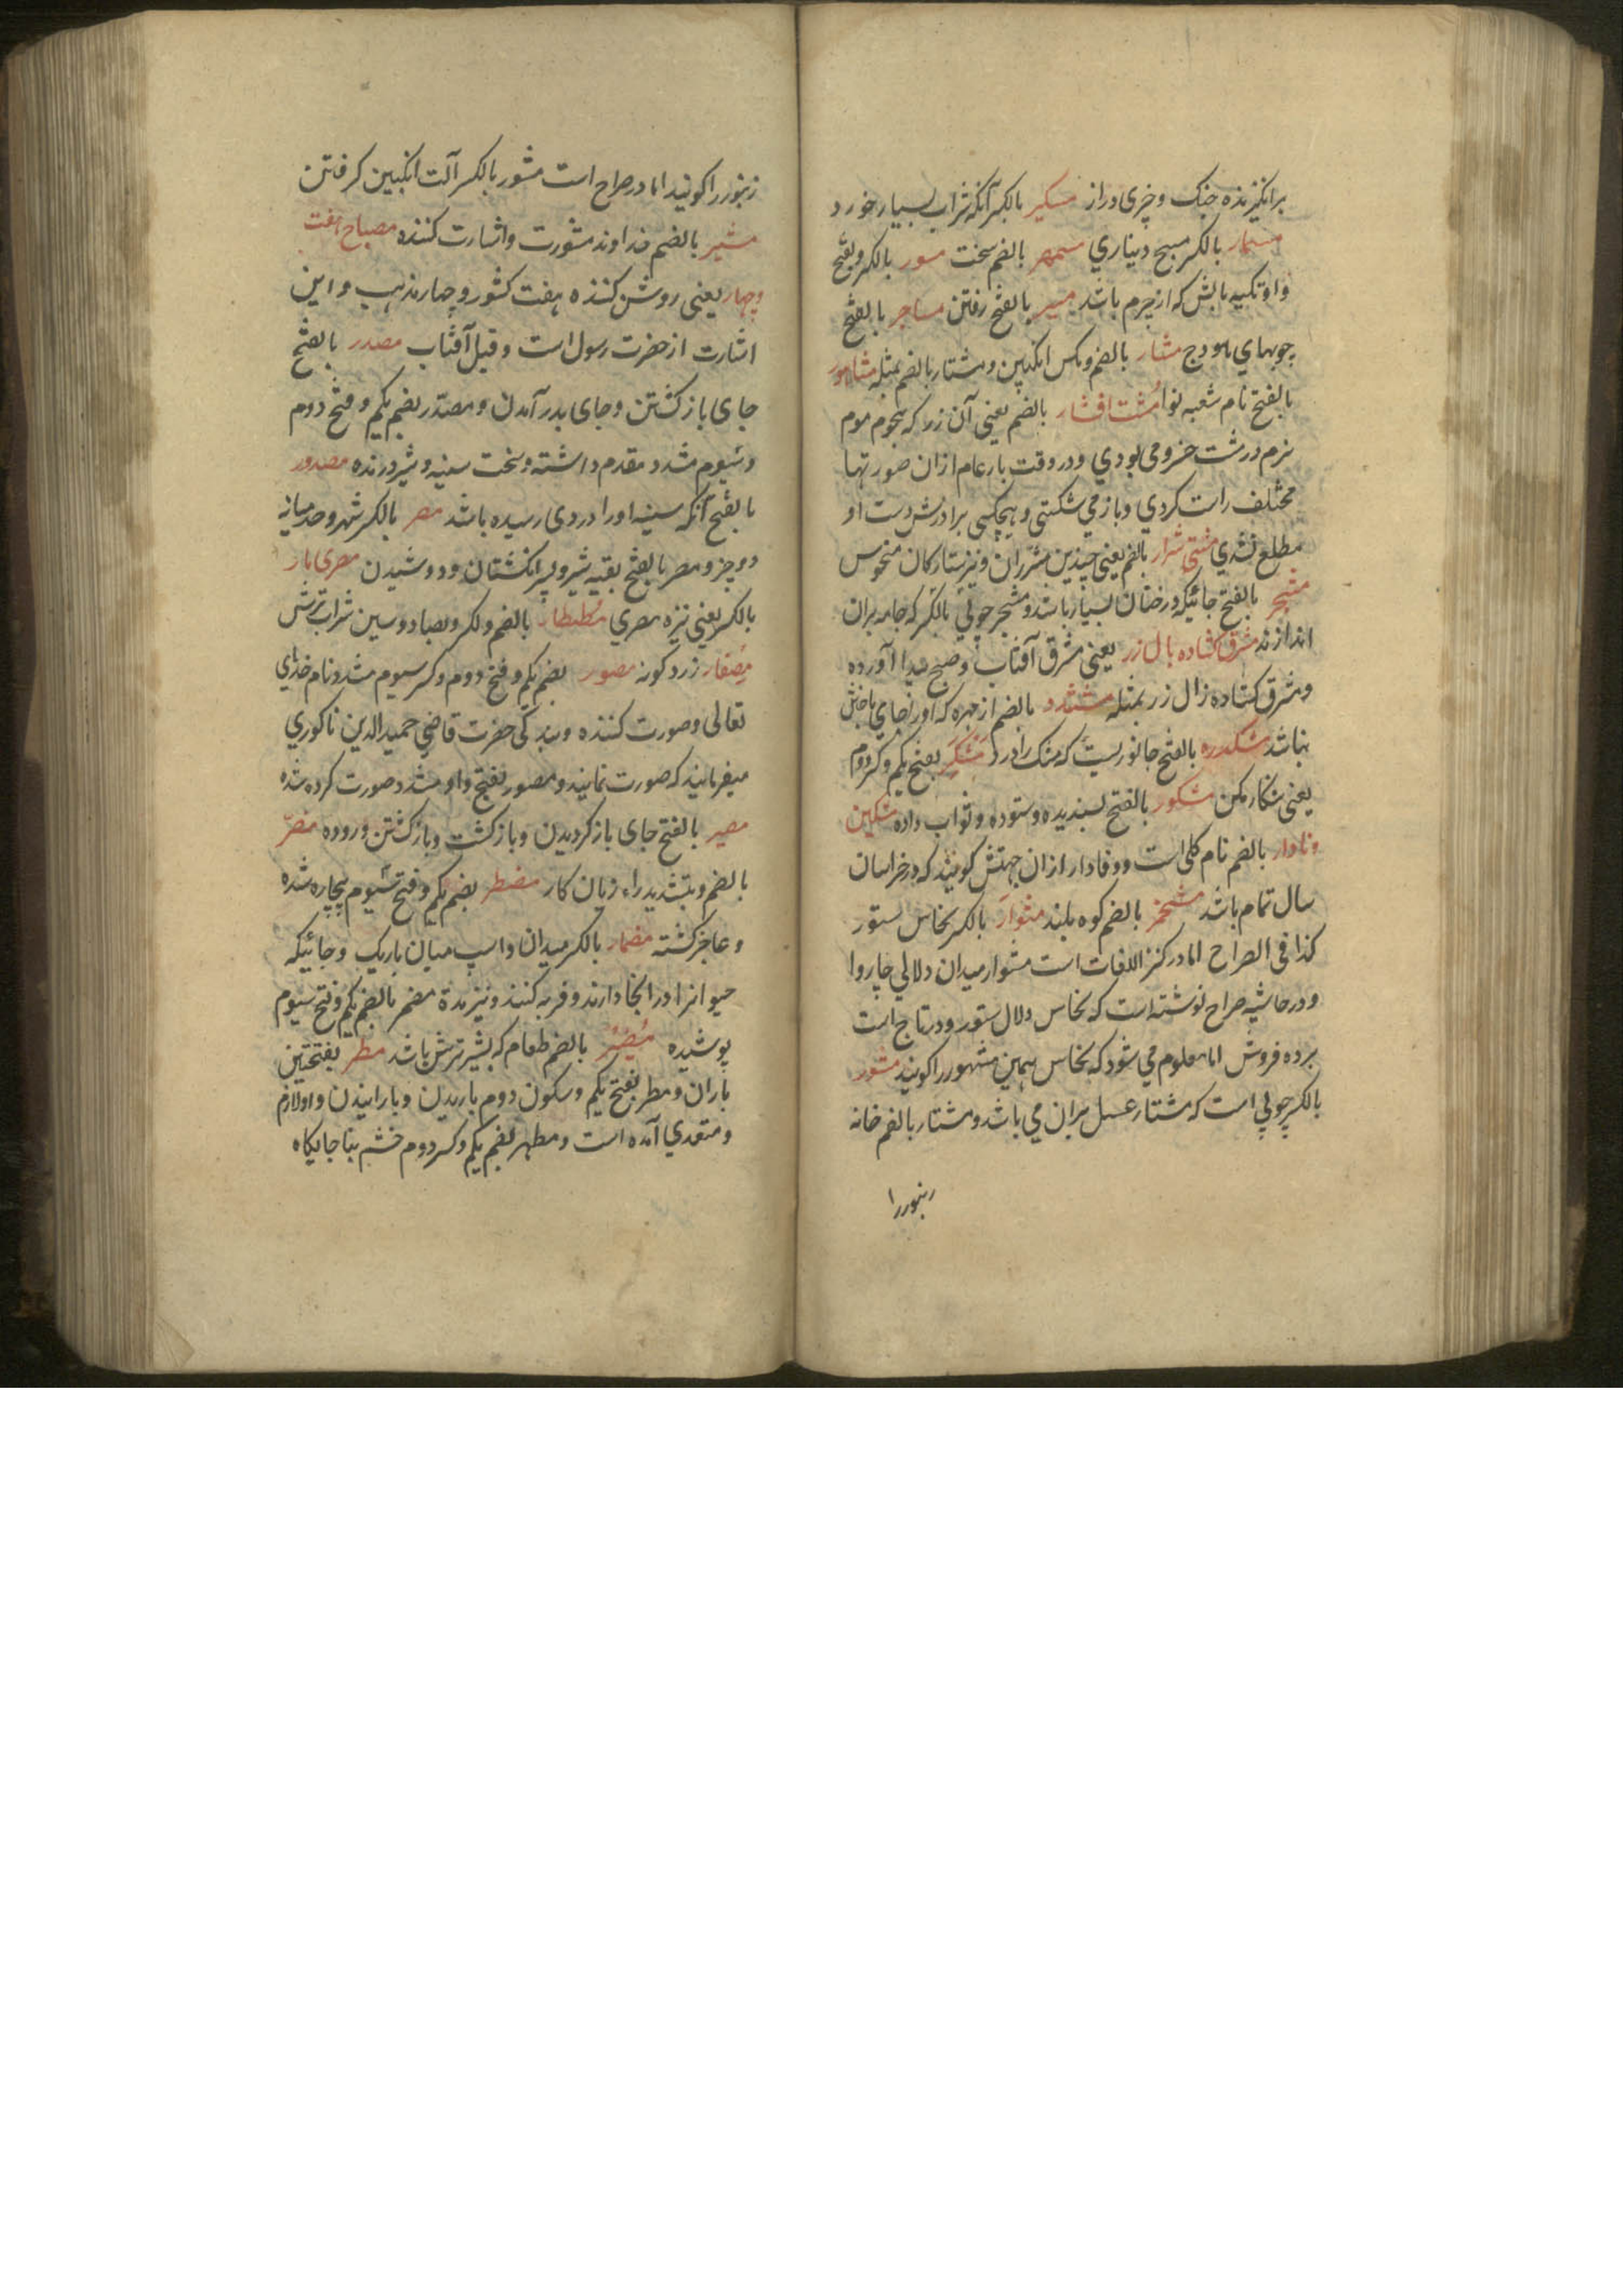 برانگیزنده جنک و چیزی دراز مسکیر بالکسر آنکه شراب بسیار خورد
مسمار بالکسر میخ دیناری مسمهر بالضم سخت مسور بالکسر و بفتح
واو تکیه بالش که از چرم باشد مسیر بالفتح رفتن مساجر بالفتح
چوبهای هودج مشار بالضم و مکس انکبین و مشتار بالضم بمثله
بالفتح نام شعبه نوا مشت افشار بالضم یعنی آن زر که همچو موم
نرم در مشت خسرو می بودی و در وقت بار عام ازان صورتها
مختلف راست کردی و باز می شکستی و هیچکسی برادرش دست او
مطلع نشدی مشتی شرار بالضم یعنی چندین شرران و نیز ستارکان منحوس
مشجر بالفتح جائیکه درختان بسیار باشد و مشجر چوبی بالکسر که جامه بران
اندازند مشرق کشاده بال زر یعنی مشرق آفتاب و صبح پیدا آورده
و مشرق کشاده زال زر بمثله بالضم از جهره که او را جای باخش
نباشد مشکدره بالفتح جانوریست که مشک را درد مشکر بفتح یکم و کسر دوم
یعنی شکار مکن مشکور بالفتح پسندیده و ستوده و ثواب داده مشکین
وفادار بالضم نام کلی است و وفادار ازان جهتش کویند که در خراسان
سال تمام باشد مشمخر بالضم کوه بلند مشوار بالکسر نخاس ستور
کذا فی الصراح اما در کنز اللغات است مشوار میدان دلالی چاروا
و در حاشیه صراح نوشته است که نخاس دلال ستور و در تاج است
برده فروش اما معلوم می شود که نخاس همین مشهور را کویند مشور
بالکسر چوبی است که مشتار عسل بران می باشد و مشتار بالضم خانه
زنبور را
زنبور را کویند اما در صراح است مشور بالکسر آلت انکبین کرفتن
مشیر بالضم خداوند مشورت و اشارت کننده مصباح هفت
و چهار یعنی روشن کننده هفت کشور و چهار مذهب و این
اشارت از حضرت رسول است و قیل آفتاب مصدر بالفتح
جای باز کشتن و جای بدر آمدن و مصدر بضم یکم و فتح دوم
و سیوم مشدد مقدم داشته و سخت سینه و شیر درنده مصدور
بالفتح آنکه سینه او را دردی رسیده باشد مصر بالکسر شهر و حد میانه
دو چیز و مصر بالفتح بقیه شیر و بسر انکشتان و دوشیدن مصری بار
بالکسر یعنی نیزه مصری مصطار بالضم و الکسر و بصاد و سین شراب ترش
مصفار زرد کونه مصور بضم یکم و فتح دوم و کسر سیوم مشدد نام خدای
تعالی و صورت کننده و بندکی حضرت قاضی حمید الدین ناکوری
میفرمایند که صورت نمایند و مصور بفتح واو مشدد صورت کرده شده
مصیر بالفتح جای باز کردیدن و باز کشت و باز کشتن و روده مضر
بالضم و بتشدید راء زیان کار مضطر بضم یکم و فتح سیوم بیچاره شده
و عاجز کشته مضمار بالکسر میدان و اسپ میان باریک و جائیکه
حیوانرا در انجا دارند و فربه کنند و نیز مدة مضمر بالضم یکم و فتح سیوم
پوشیده مضیر بالضم طعام که بشیر ترش باشد مطر بفتحتین
باران و مطر بفتح یکم و سکون دوم باریدن و بارانیدن و او لازم
و متعدی آمده است و مطهر بضم یکم و کسر دوم